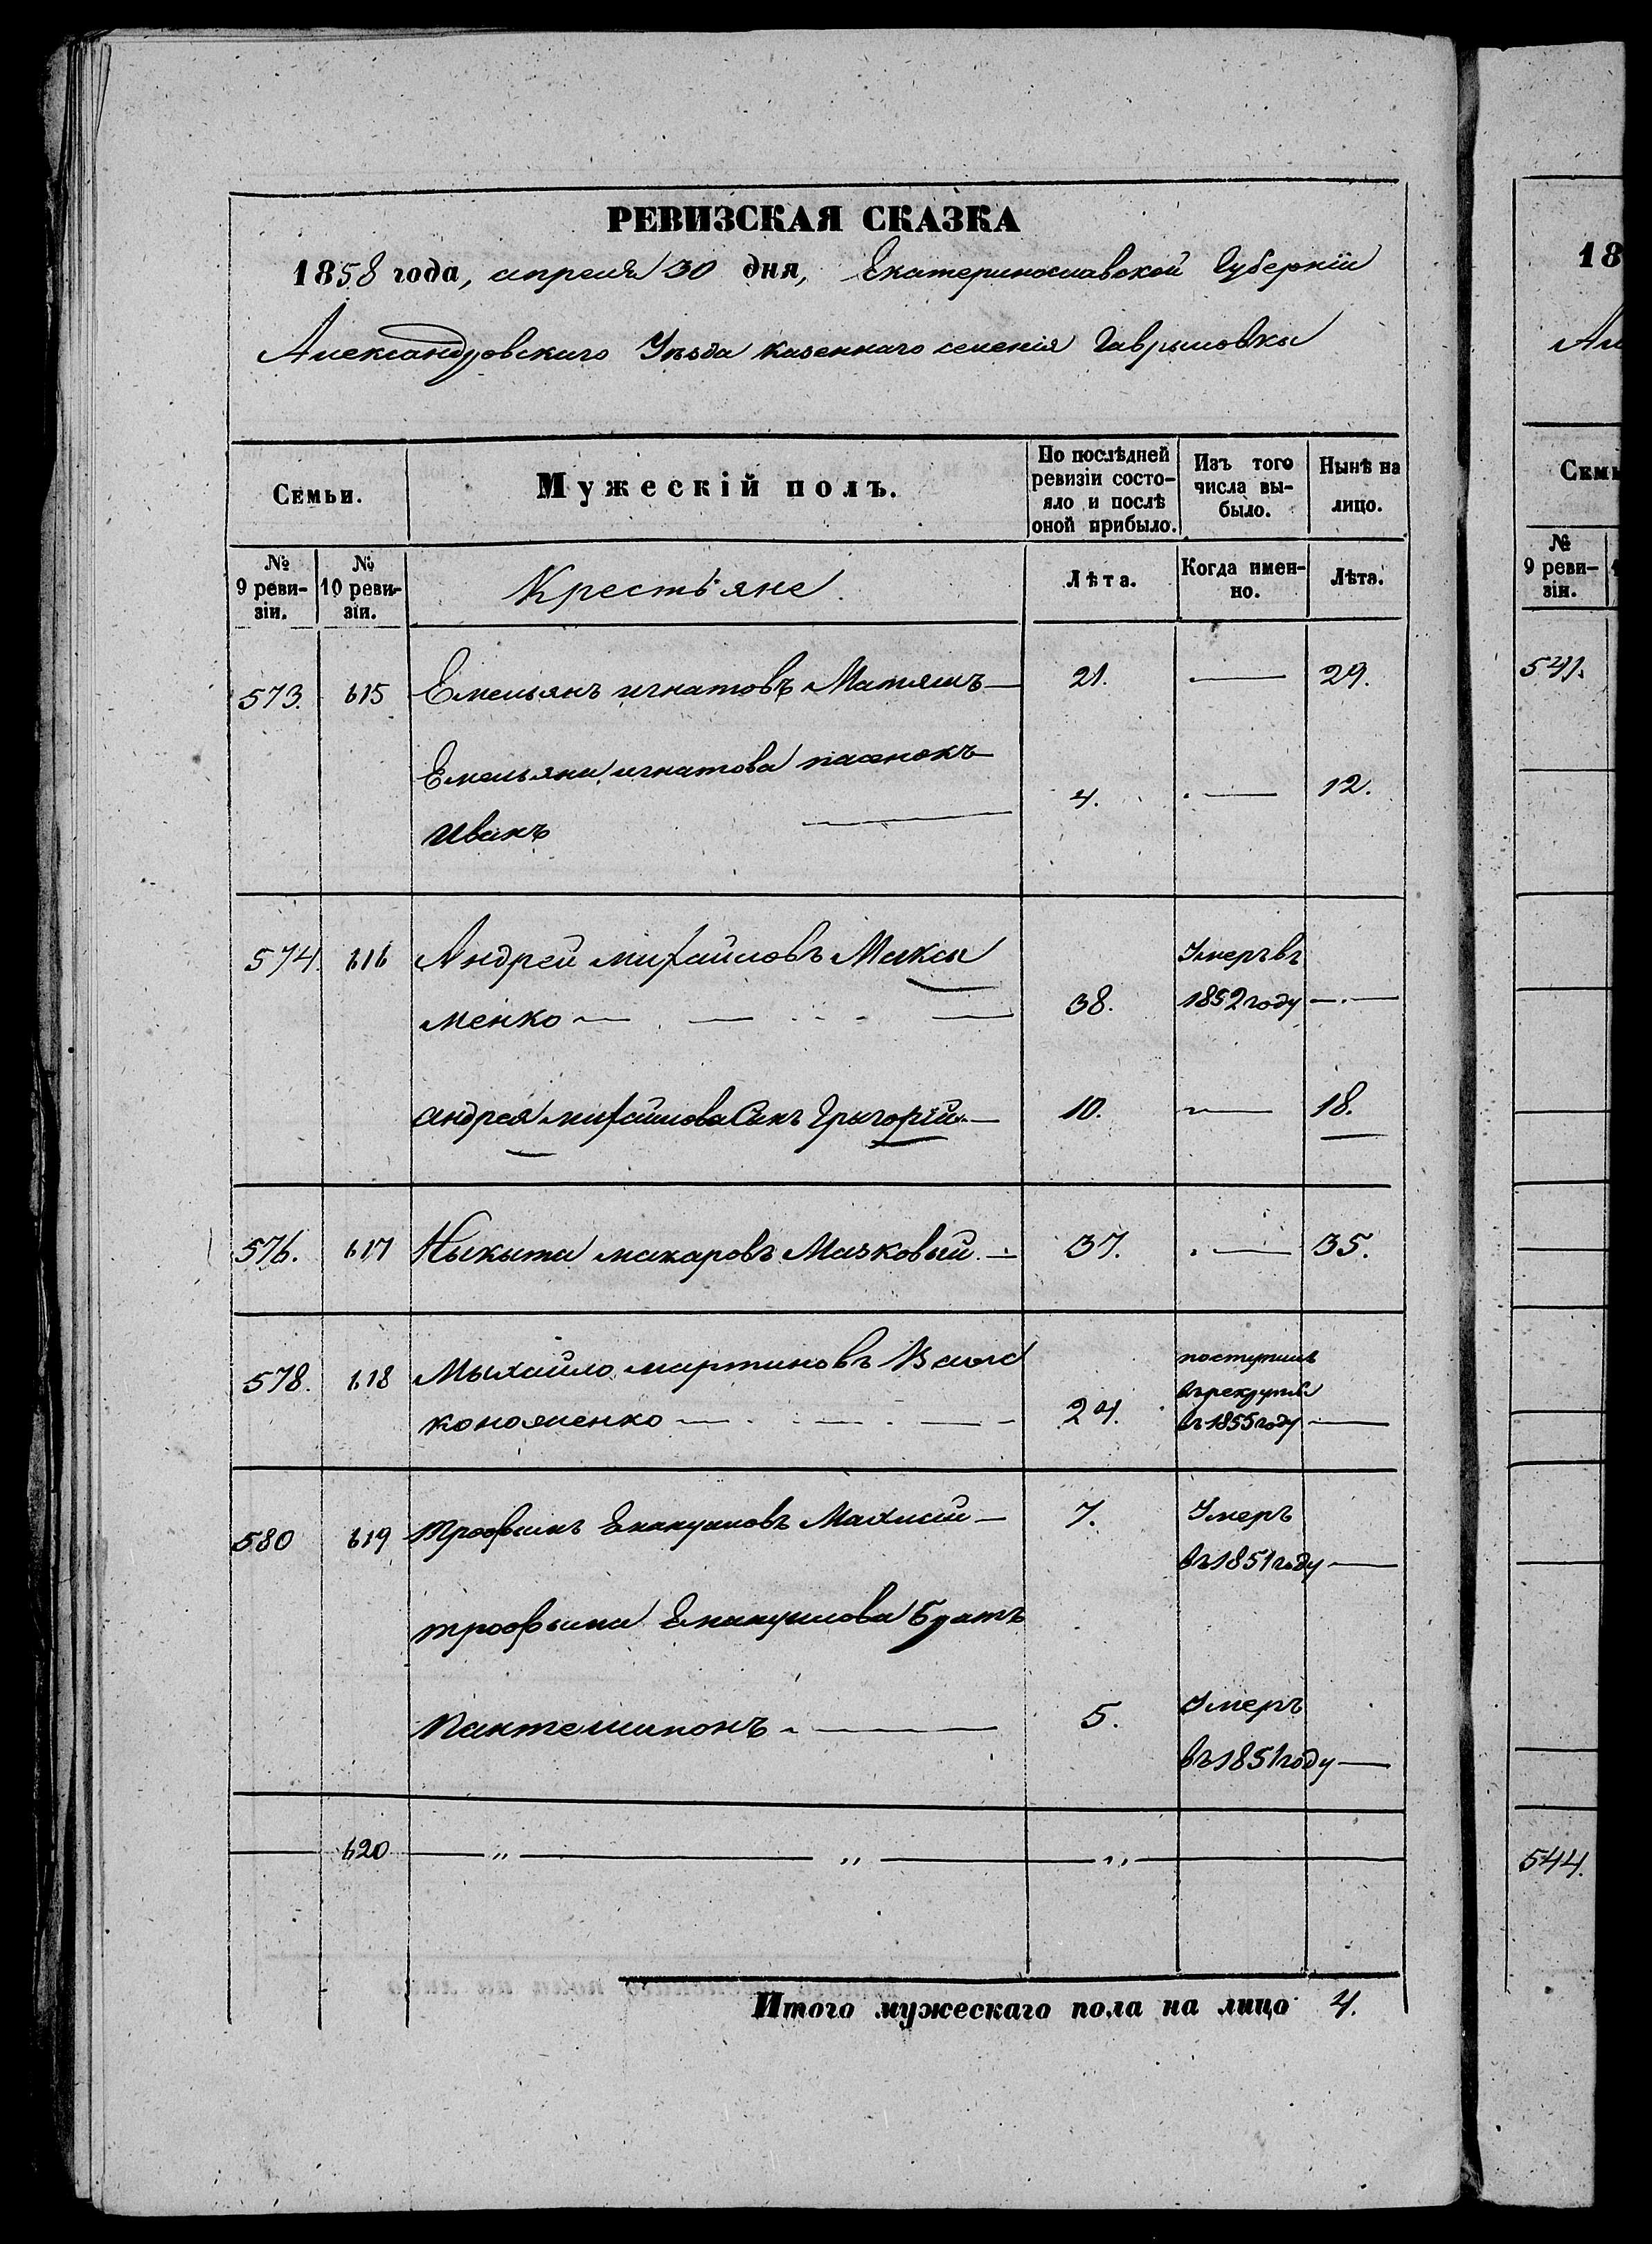 РЕВИЗСКАЯ СКАЗКА
1858 года, апреля 30 дня, Екатеринославской Губернiи
Александровскаго Уѣзда казеннаго селенiя Гаврыловки
Семьи.
Мужескiй полъ.
По послѣдней ревизiи состо-
яло и послѣ оной прибыло.
Изъ того числа вы-
было.
Нынѣ на лицо.
№ 9 реви-
зiи.
№ 10 реви-
зiи.
Крестьяне.
Лѣта.
Когда имен-
но.
Лѣта.
573. 615 Емельянъ игнатовъ Матяшъ 21. 29.
Емельяна игнатова пасенокъ
Иванъ 4. 12.
574. 616 Андрей михайловъ Макси
менко 38. Умеръ въ
1852 году
андрея михайлова Сынъ Грыгорiй 10. 18.
576. 617 Ныкыта макаровъ Мачковый 37. 35.
578. 618 Мыхайло мартиновъ
коноженко 24. поступилъ
въ рекруты
въ 1855 году
580 619 трофымъ 7. Умеръ
въ 1851 году
трофыма Братъ
Пантелимонъ 5. Умеръ
въ 1851 году
620 " " "
Итого мужескаго пола на лицо 4.
18
Семь
№
9 реви-
зiи.
541.
544.